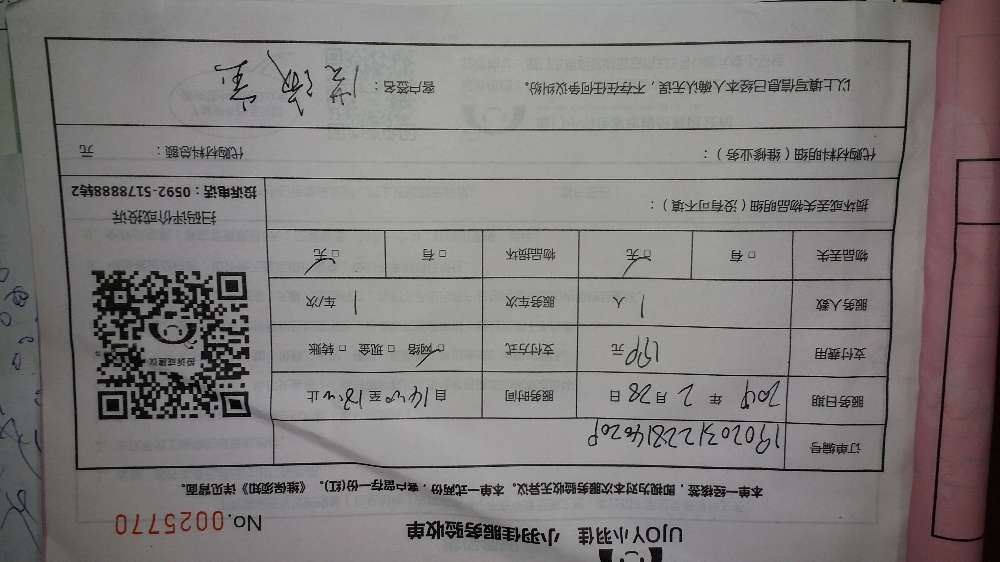 UJOY丫小羽佳 小羽佳服务验收单
No.0025770
本单一经接签，即视为对本次服务验收无异议。本单一式两份，客户留存一份(红)。《维保须知》详见背面。
订单编号
服务日期 2019 年 2 月 28 日 服务时间 自 至 止
支付费用 190 元 支付方式 □网络 □现金 □转账
服务人数 1 人 服务车次 1 车/次
物品丢失 □有 □无 物品损坏 □有 □无
投诉或建议
扫码评价或投诉
投诉电话：0592-5178888转2
损坏或丢失物品明细（没有可不填）：
代购材料明细（维修业务）： 代购材料总额： 元
以上填写信息已经本人确认无误，不存在任何争议纠纷。 客户签名：